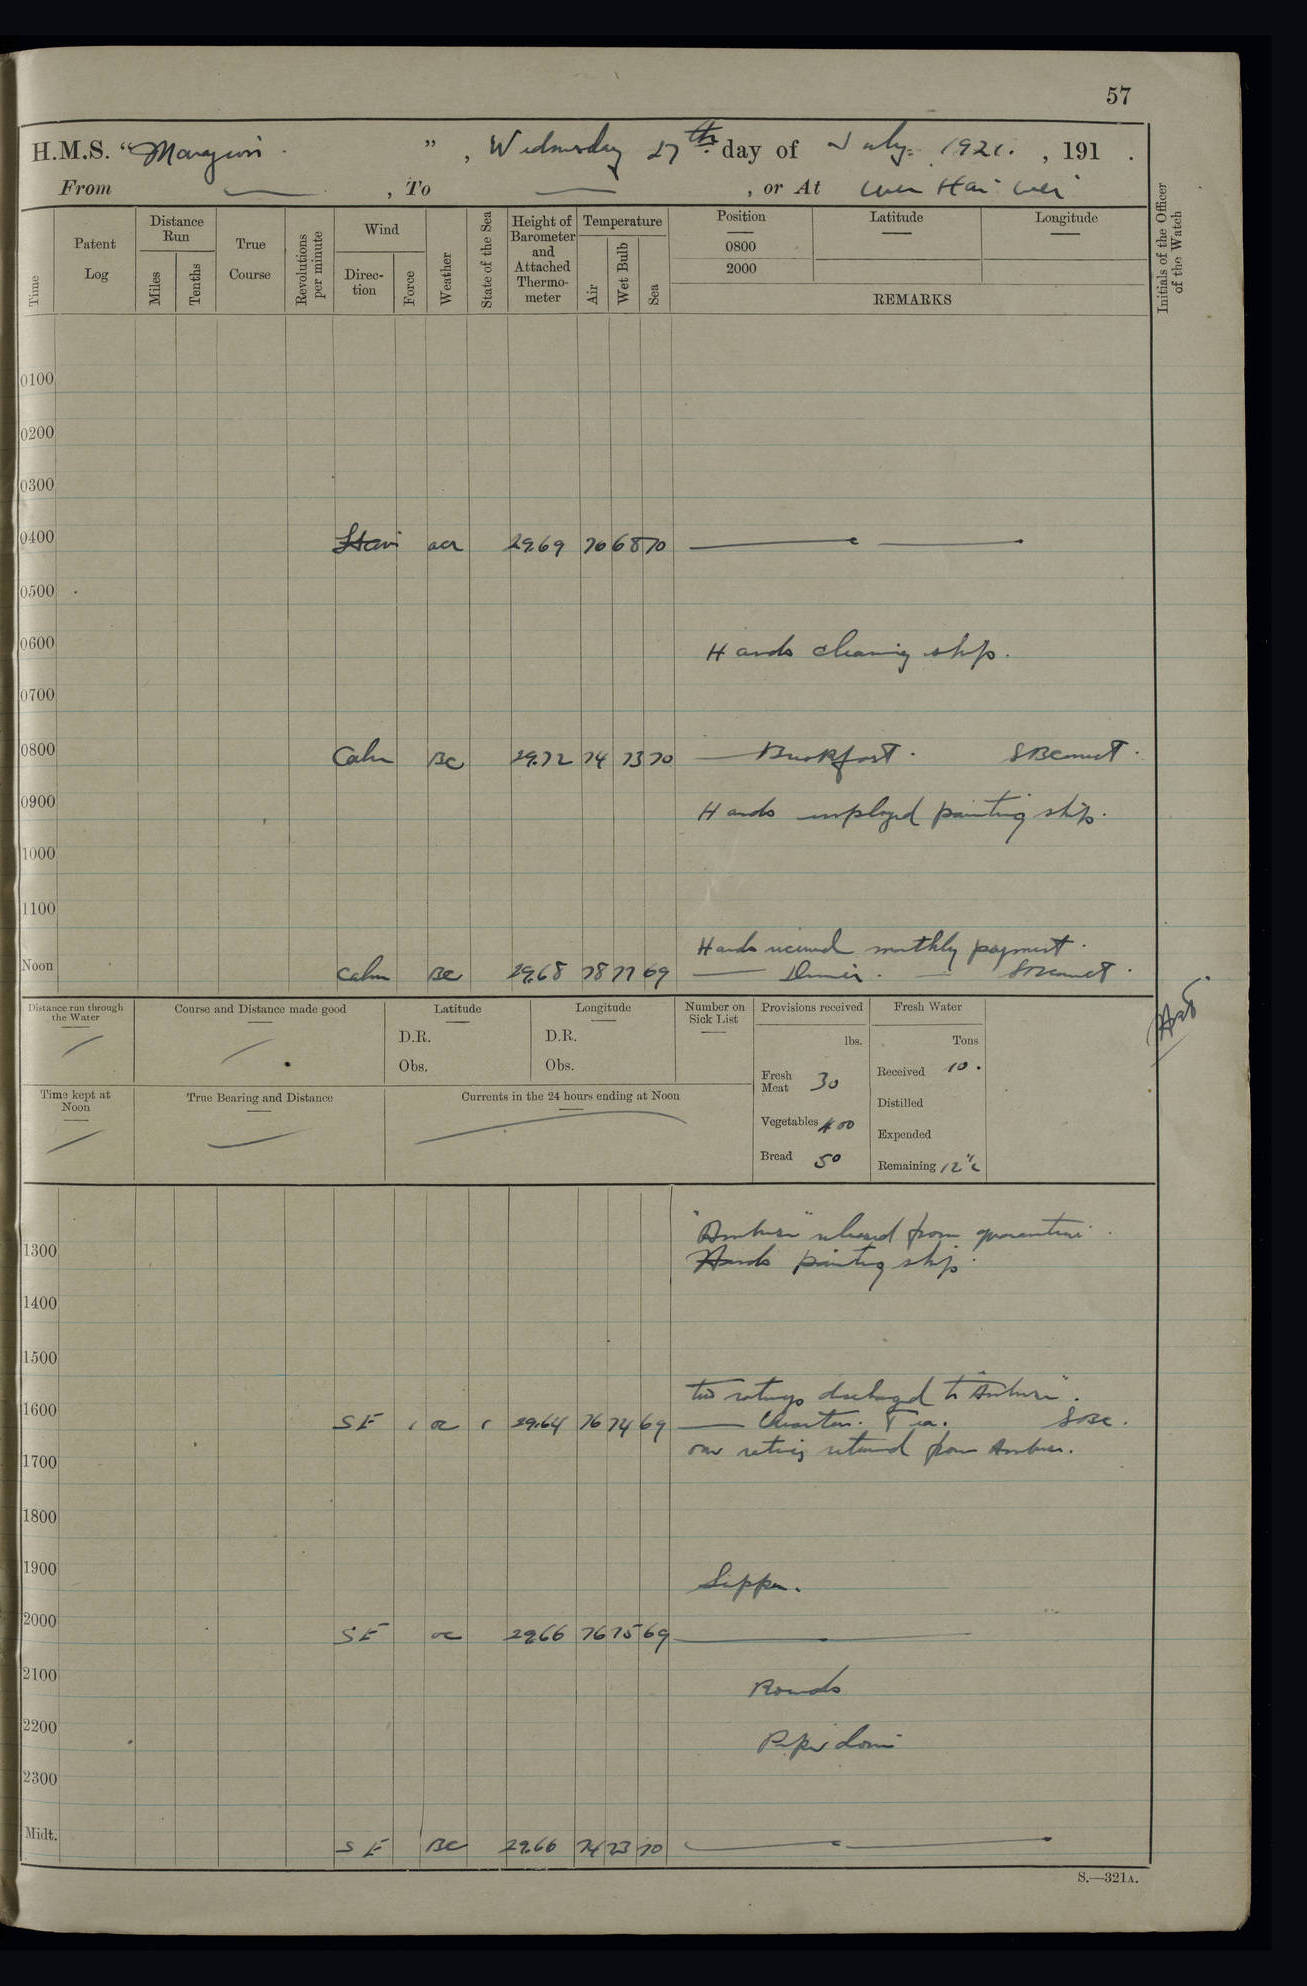 57
H.M.S. " ", Wednesday 27th day of July. 1921. , 191 .
From — , To — , or At Wei Hai Wei
Time
Patent Log
Distance Run
Miles
Tenths
True Course
Revolutions per minute
Wind
Direc-tion
Force
Weather
State of the Sea
Height of Barometer and Attached Thermo-meter
Temperature
Air
Wet Bulb
Sea
Position
0800
2000
Latitude
Longitude
REMARKS
Initials of the Officer of the Watch
0100
0200
0300
0400 29.69 70 68 70
0500
0600 Hands cleaning ship.
0700
0800 Calm BC 29.72 74 73 70 — Breakfast. SBennet.
0900 Hands employed painting ship.
1000
1100
Hands received monthly payment.
Noon Calm BC 29.68 78 77 69 — Dinner. — SBennet.
Distance run through the Water
Course and Distance made good
Latitude
D.R.
Obs.
Longitude
D.R.
Obs.
Number on Sick List
Provisions received
lbs.
Fresh Meat 30
Vegetables 400
Bread 50
Fresh Water
Tons
Received 10.
Distilled
Expended
Remaining 12½
Time kept at Noon
True Bearing and Distance
Currents in the 24 hours ending at Noon
released from quarantine.
1300 Hands painting ship.
1400
1500
two ratings discharged to
1600 SE 1 oc 1 29.64 76 74 69 — Quarters. Tea. SBe.
one rating returned from
1700
1800
1900 Supper.
2000 SE oc 29.66 76 75 69
2100 Rounds
2200 Pipe down
2300
Midt. SE BC 29.66 74 73 70
S.—321A.